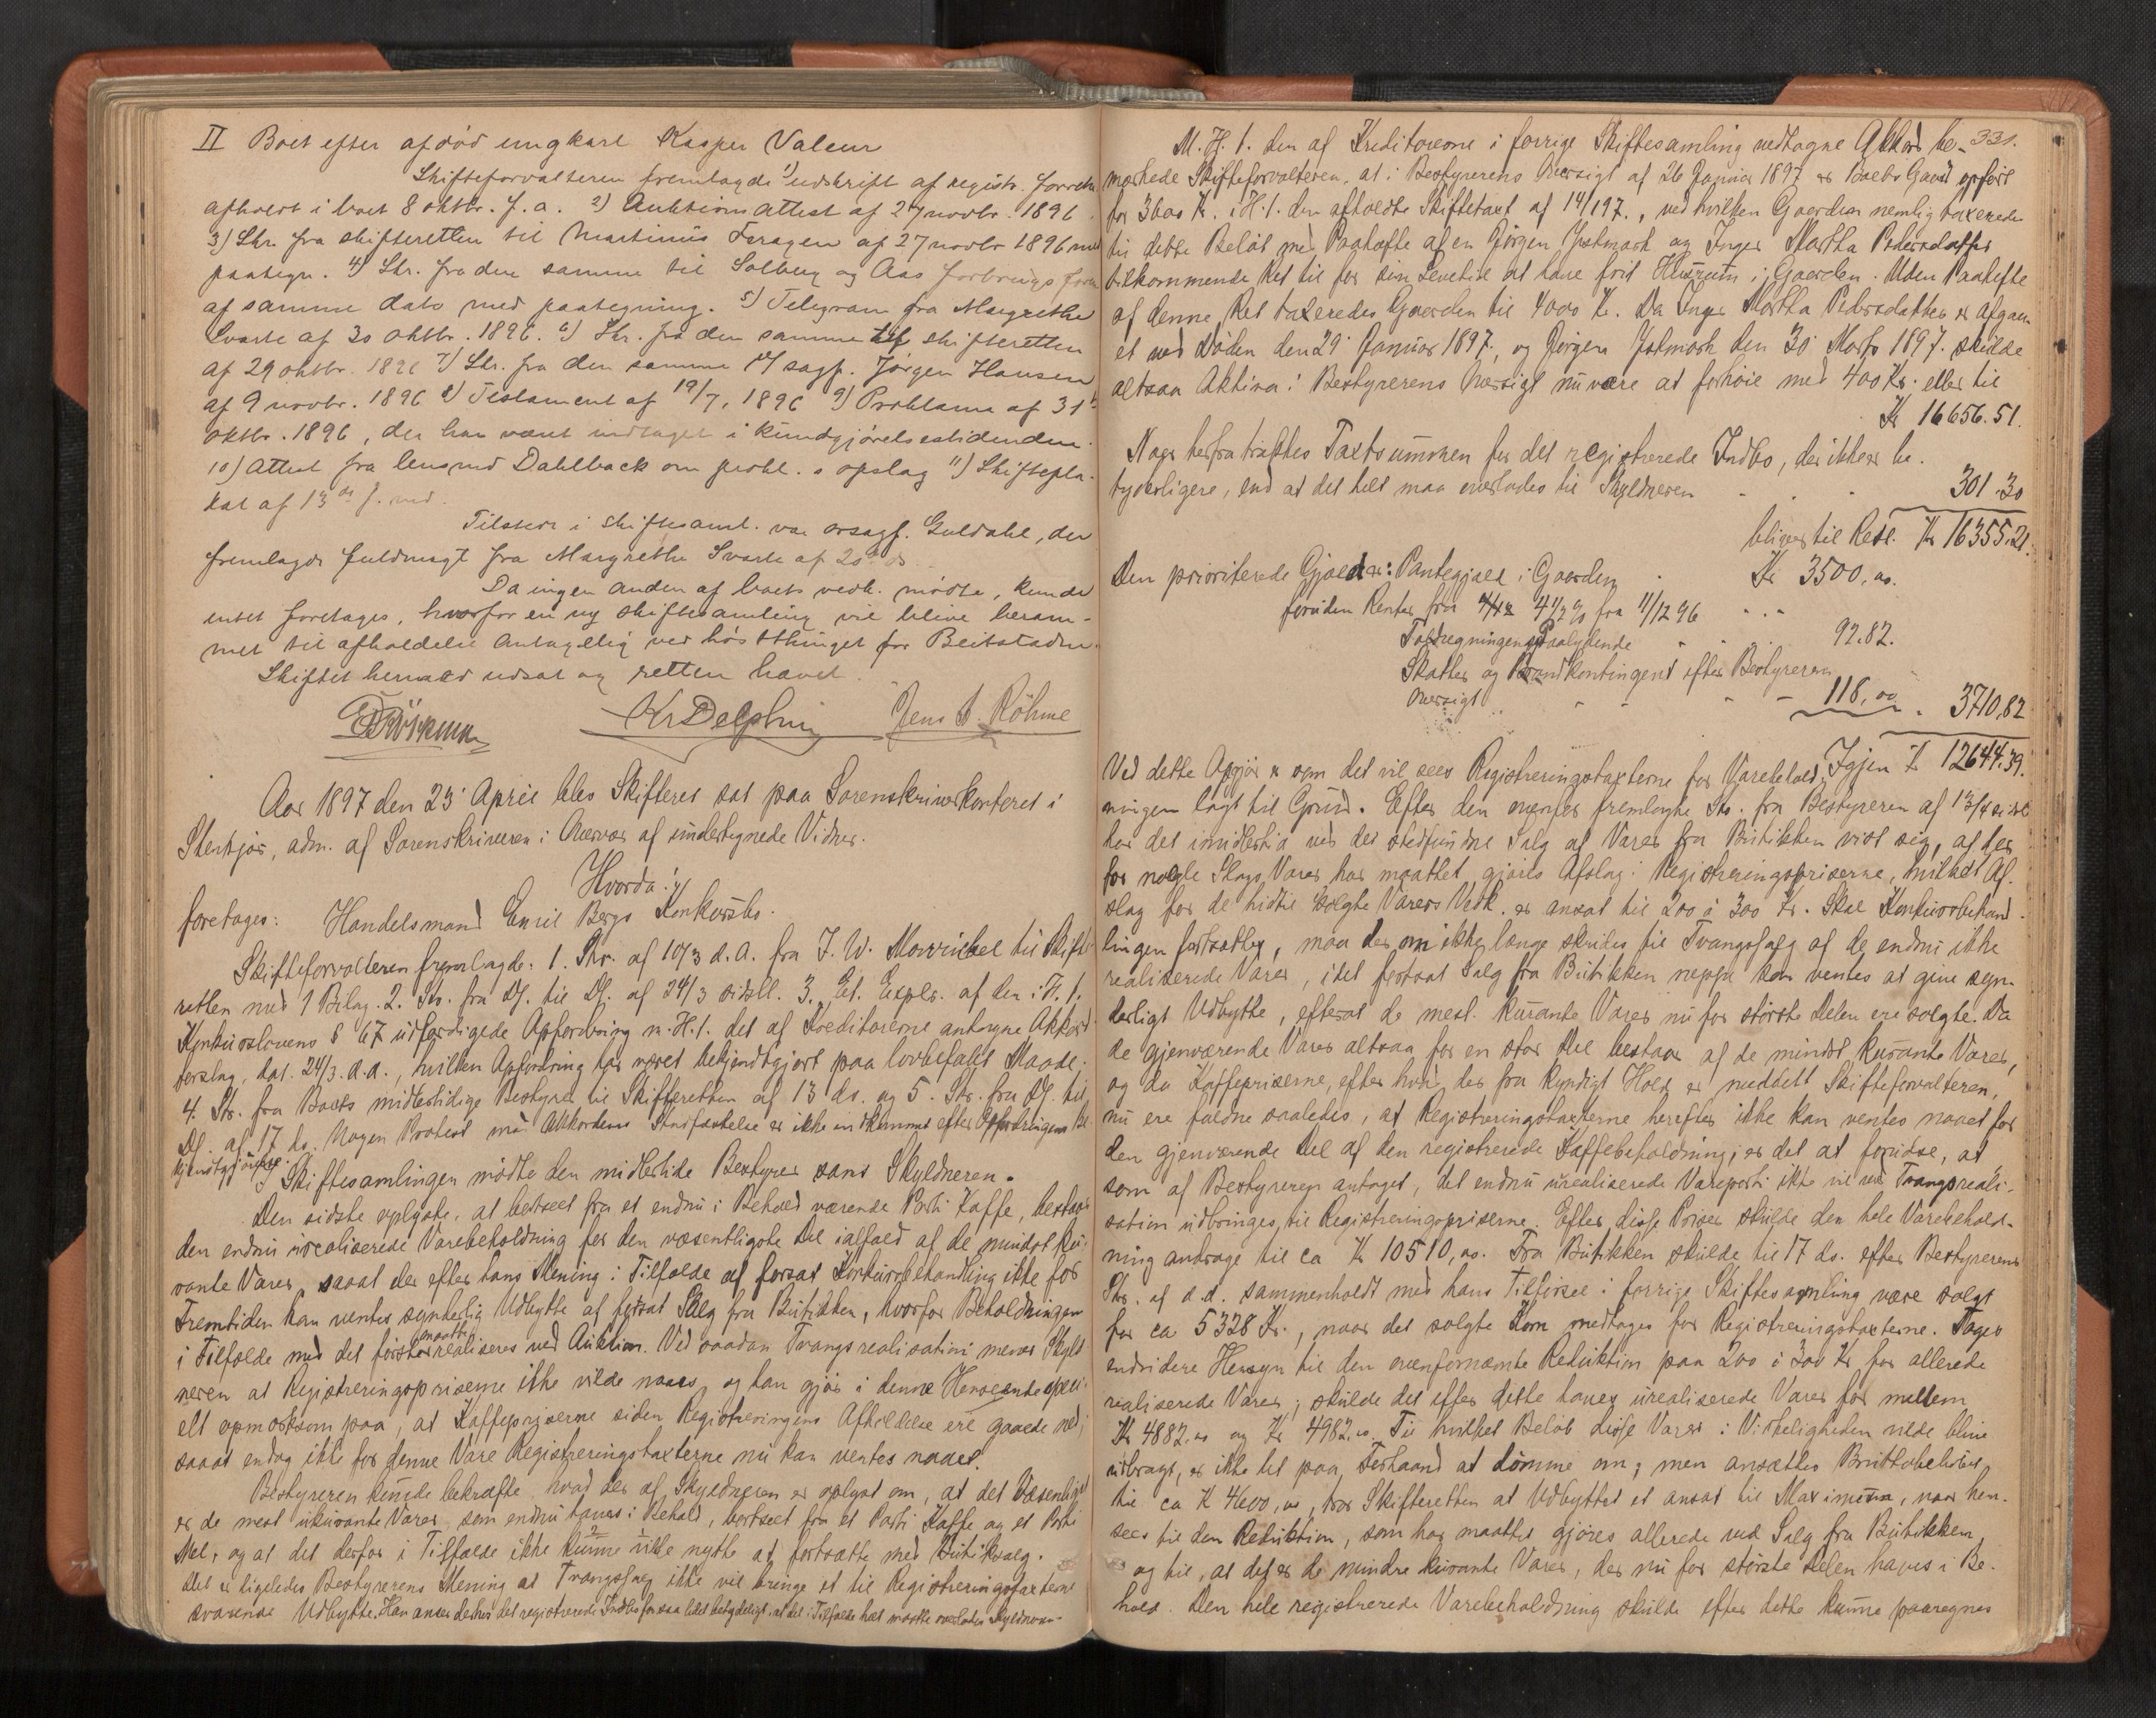 II Boet efter afdød ungkarl Kasper Valeur
Skifteforvalteren fremlagde 1) udskrift af registr. forretn.
afholdt i boet 8 oktbr. f. a. 2) Auktions attest af 27 novbr. 1896.
3) Skr. fra skifteretten til Martinus af 27 novbr 1896 med
paategn. 4) Skr. fra den samme til Solberg og Aas forbrugsforen
af samme dato med paategning. 5) Telegram fra Margrethe
Svarte af 30 oktbr. 1896. 6) Skr. fra den samme til skifteretten
af 29 oktbr. 1896 7) Skr. fra den samme til sagf. Jørgen Hansen
af 9 novbr. 1896 8) Testament af 19/7. 1896 9) Proklama af 31te
oktbr. 1896, der har været indtaget i kundgjørelsestidenden.
10) Attest fra lensmd Dahlback om prokl.s opslag 11) Skiftepla-
kat af 13de f. md.
Tilstede i skiftesaml. var orsagf. Guldahl, der
fremlagde fuldmagt fra Margrethe Svarte af 20de ds
Da ingen anden af boets vedk. mødte, kunde
intet foretages, hvorfor en ny skiftesamling vil blive beram-
met til afholdelse antagelig ved høsttthinget for Beitstaden.
Skiftet hermed udsat og retten hævet.
Kr Delphin Jens A. Röhme
Aar 1897 den 23' April blev Skifteret sat paa Sorenskriverkontoret i
Stenkjær, adm. af Sorenskriveren i Overvær af undertegnede Vidner.
Hvorda!
foretages: Handelsmand Emil Bergs Konkursbo.
Skifteforvalteren fremlagde: 1. Skr. af 10/3 d. A. fra J. W. Mowinckel til Skifte
retten med 1 Bilag. 2. Skr. fra Df. til Df. af 24/3 sidstl. 3. Et. Explr. af den i H. t.
Konkurslovens § 67 udfærdigede Opfordring m. H. t. det af Kreditorerne antagne Akkord
forslag, dat. 24/3. d.a., hvilken Opfordring har været bekjendtgjort paa lovbefalet Maade;
4. Skr. fra Boets midlertidige Bestyrer til Skifteretten af 13 ds. og 5. Skr. fra Df. til
Df. af 17 ds. Nogen Protest mod Akkordens Stadfæstelse er ikke indkommet efter Opfordringens be
kjendtgjørelse.
I Skiftesamlingen mødte den midlertide Bestyrer samt Skyldneren.
Den sidste oplyste, at bortseet fra et endnu i Behold værende Parti Kaffe, bestaar
den endnu urealiserede Varebeholdning for den væsentligste Del ialfald af de mindst ku-
rante Varer, saaat der efter hans Mening i Tilfælde af forsat Konkursbehandling ikke for
Fremtiden kan ventes synderlig Udbytte af fortsat Salg fra Butikken, hvorfor Beholdningen
i Tilfælde med det første maatte realiseres ved Auktion. Ved saadan Tvangsrealisation mener Skyld
neren at Registreringspriserne ikke vilde naaes, og han gjør i denne Henseende speci-
elt opmerksom paa, at Kaffepriserne siden Registreringens Afholdelse ere gaaede ned;
saaat endog ikke for denne Vare Registreringstaxterne nu kan ventes naaet.
Bestyreren kunde bekræfte hvad der af Skyldneren er oplyst om, at det væsenligst
er de mest ukurante Varer som endnu haves i Behold, bortseet fra et Parti Kaffe og et Parti
Mel, og at det derfor i Tilfælde ikke kunne nytte at fortsætte med Butiksalg.
Det er ligeledes Bestyrerens Mening at Tvangssalg ikke vil bringe et til Registreringstaxterne
svarende Udbytte. Han anser derhos det registrerede Indbo for saa lidet betydeligt, at det i Tilfælde helt maatte overlades Skyldneren.
331.
M. H. t. den af Kreditorerne i forrige Skiftesamling vedtagne Akkord be-
mærkede Skifteforvalteren, at i Bestyrerens Oversigt af 26 Januar 1897 er Boets Gaard opført
for 3600 Kr. i H. t. den afholdte Skiftetaxt af 14/1 97., ved hvilken Gaarden nemlig taxerede
til dette Beløb med Paahefte af en Jørgen Ystmark og Inger Martha Pedersdatter
tilkommende Ret til for sin Levetid at have frit Husrum i Gaarden. Uden Paahefte
af denne Ret taxeredes Gaarden til 4000 Kr. Da Inger Martha Pedersdatter er afgaa-
et ved Døden den 29' Januar 1897, og Jørgen Ystmark den 30' Marts 1897. skulde
altsaa Aktiva i Bestyrerens Oversigt nu være at forhøie med 400 Kr. eller til
Kr 16656.51.
Naar herfra trækkes Taxtsummen for det registrerede Indbo, der ikke er be-
tyderligere, end at det helt maa overlades til Skyldneren - - - 301.30
bliver til Rest. Kr 16355.21.
Den prioriterede Gjæld er: Pantegjæld i Gaarden - Kr 3500,00.
foruden Renter fra 4 1/2 % fra 11/12 96 - - -
Paalydende - - - 92.82.
Skatter og Brandkontingent efter Bestyrerens
Oversigt - - - - 118,00. 3710,82
Igjen Kr 12644.39.
Ved dette Opgjør er som det vil sees Registreringstaxterne for Varebehold-
ningen lagt til Grund. Efter den ovenfor fremlagte Skr. fra Bestyreren af 13/4 sidstl
har det imidlertid ved det stedfundne Salg af Varer fra Butikken vist sig, at der
for nogle Slags Varer har maattet gjøres Afslag i Registreringspriserne, hvilket Af-
slag for de hidtil solgte Varers Vedk. er ansat til 200 à 300 Kr. Skal Konkursbehand-
lingen fortsættes, maa der om ikke længe skrides til Tvangssalg af de endnu ikke
realiserede Varer, idet fortsat Salg fra Butikken neppe kan ventes at give syn-
derligt Udbytte, efterat de mest kurante Varer nu for største Delen ere solgte. Da
de gjenværende Varer altsaa for en stor Del bestaar af de mindst kurante Varer,
og da Kaffepriserne, efter hvad der fra kyndigt Hold er meddelt Skifteforvalteren,
nu ere faldne saaledes, at Registreringstaxterne herefter ikke kan ventes naaet for
den gjenværende Del af den registrerede Kaffebeholdning; er det at forudse, at
som af Bestyreren antaget, det endnu urealiserede Vareparti ikke vil ved Tvangsreali-
sation udbringes til Registreringspriserne. Efter disse Priser skulde den hele Varebehold-
ning andrage til ca Kr 10510,00. Fra Butikken skulde til 17 ds. efter Bestyrerens
Skr. af s. d. sammenholdt med hans Tilførsel i forrige Skiftesamling være solgt
for ca 5328 Kr., naar det solgte Korn medtages for Registreringstaxterne. Tages
endvidere Hensyn til den ovenfornævnte Reduktion paa 200 à 300 Kr for allerede
realiserede Varer, skulde det efter dette haves urealiserede Varer for mellem
Kr 4882.00 og Kr 4982.00. Til hvilket Beløb disse Varer i Virkeligheden vilde blive
udbragt, er ikke let paa Forhaand at dømme om; men ansættes Bruttobeløbet
til ca Kr 4600,00, tror Skifteretten at Udbyttet et ansat til Maximum, naar hen-
sees til den Reduktion, som har maattet gjøres allerede ved Salg fra Butikken
og til, at det er de mindre kurante Varer, der nu for største Delen haves i Be-
hold. Den hele registrerede Varebeholdning skulde efter dette kunne paaregnes